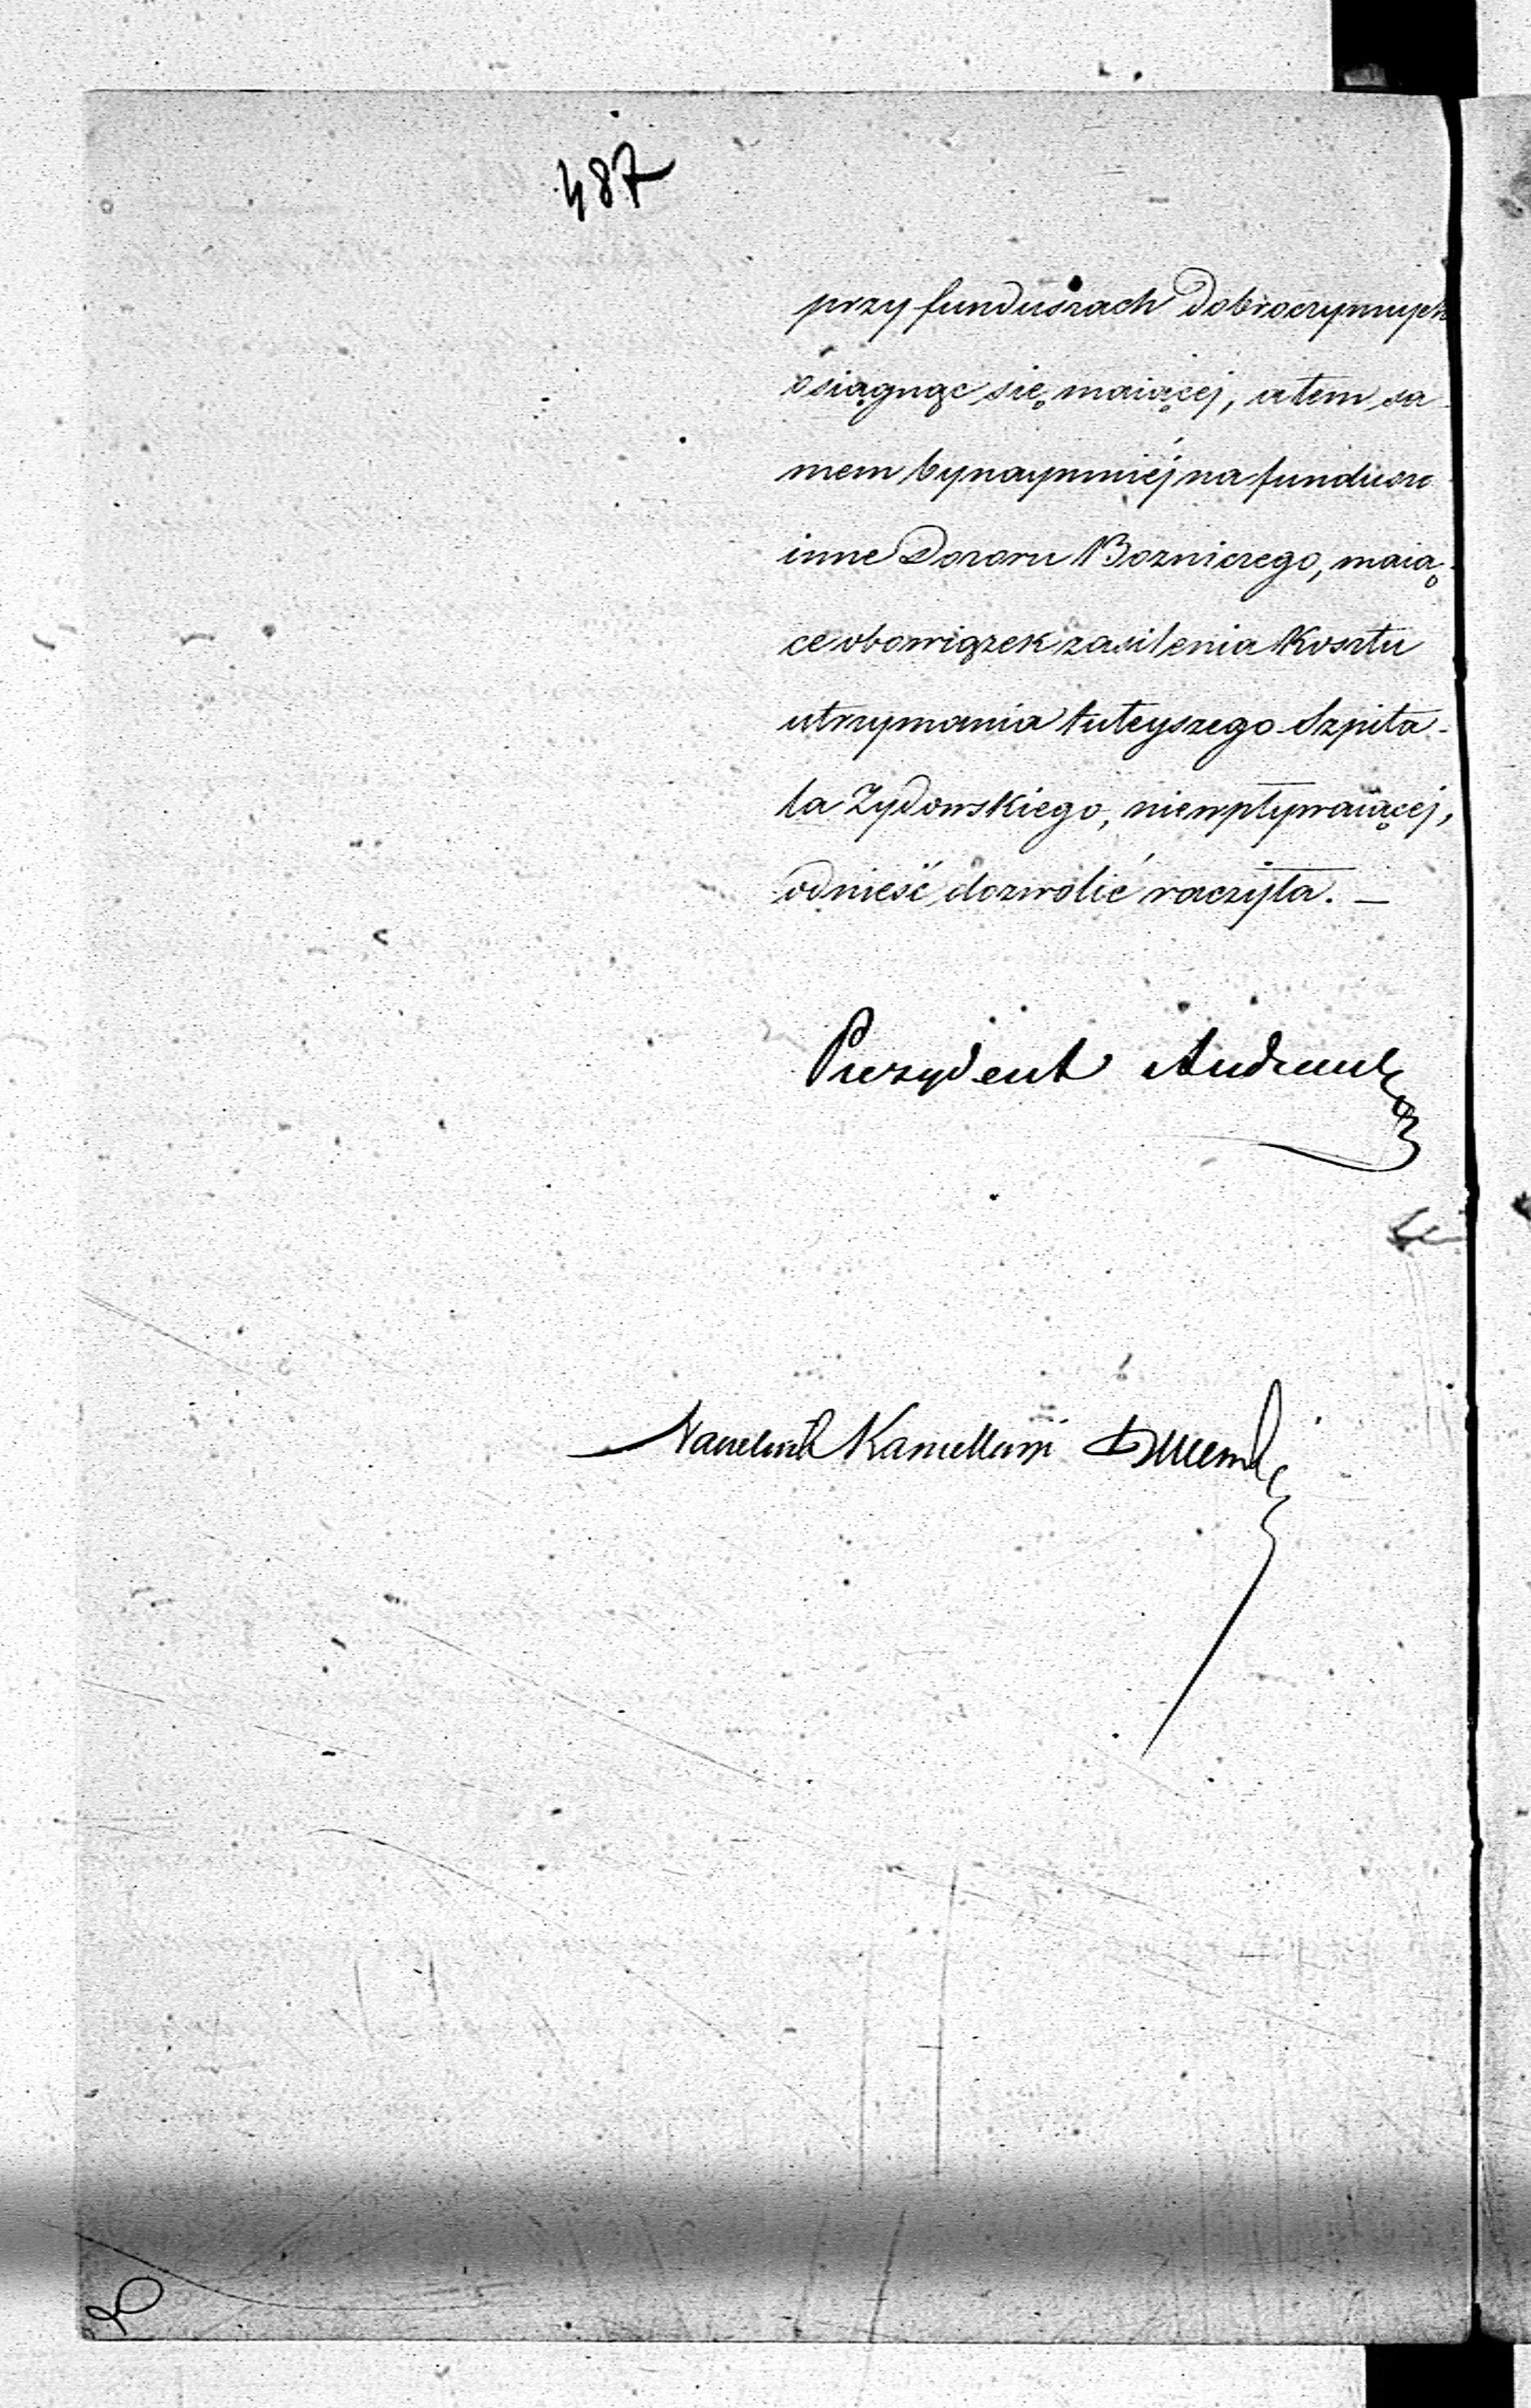 487
przy funduszach Dobroczynnych
osiągnąc się maiącej, a tem sa-
mem bynaymniéj na fundusze
inne Dozoru Bozniczego, maią-
ce obowiązek zasilenia Kosztu
utrzymania tuteyszego Szpita-
la Zydowskiego, niewpływaiącej,
odnieść dozwolić raczyła. —
Prezydent
Naczelnik Kancellaryi